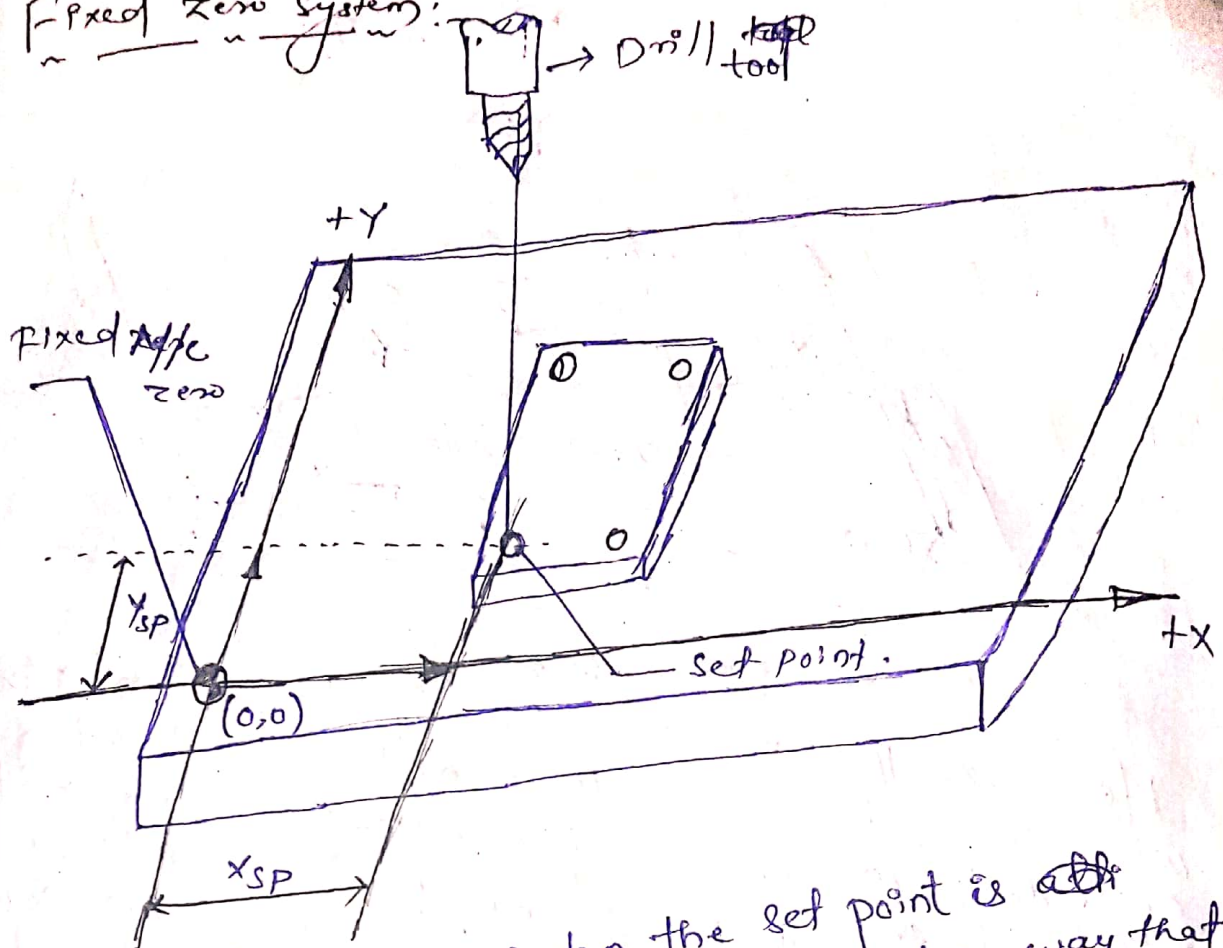 Fixed zero system:-
→ Drill tool
+Y
Fixed
zero
YSP
set point.
+X
(0,0)
XSP
the set point is
way that